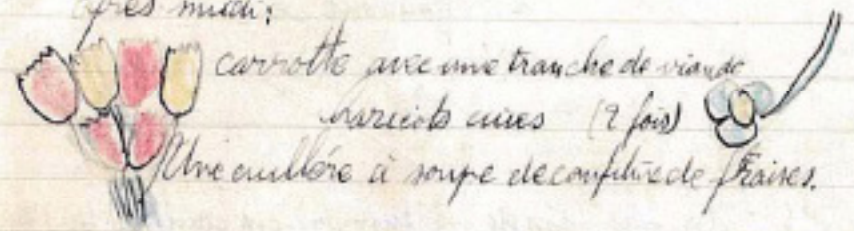 après midi:
carrotte avec une tranche de viande
haricots cuires (2 fois)
Une cuillére à soupe de confiture de fraises.